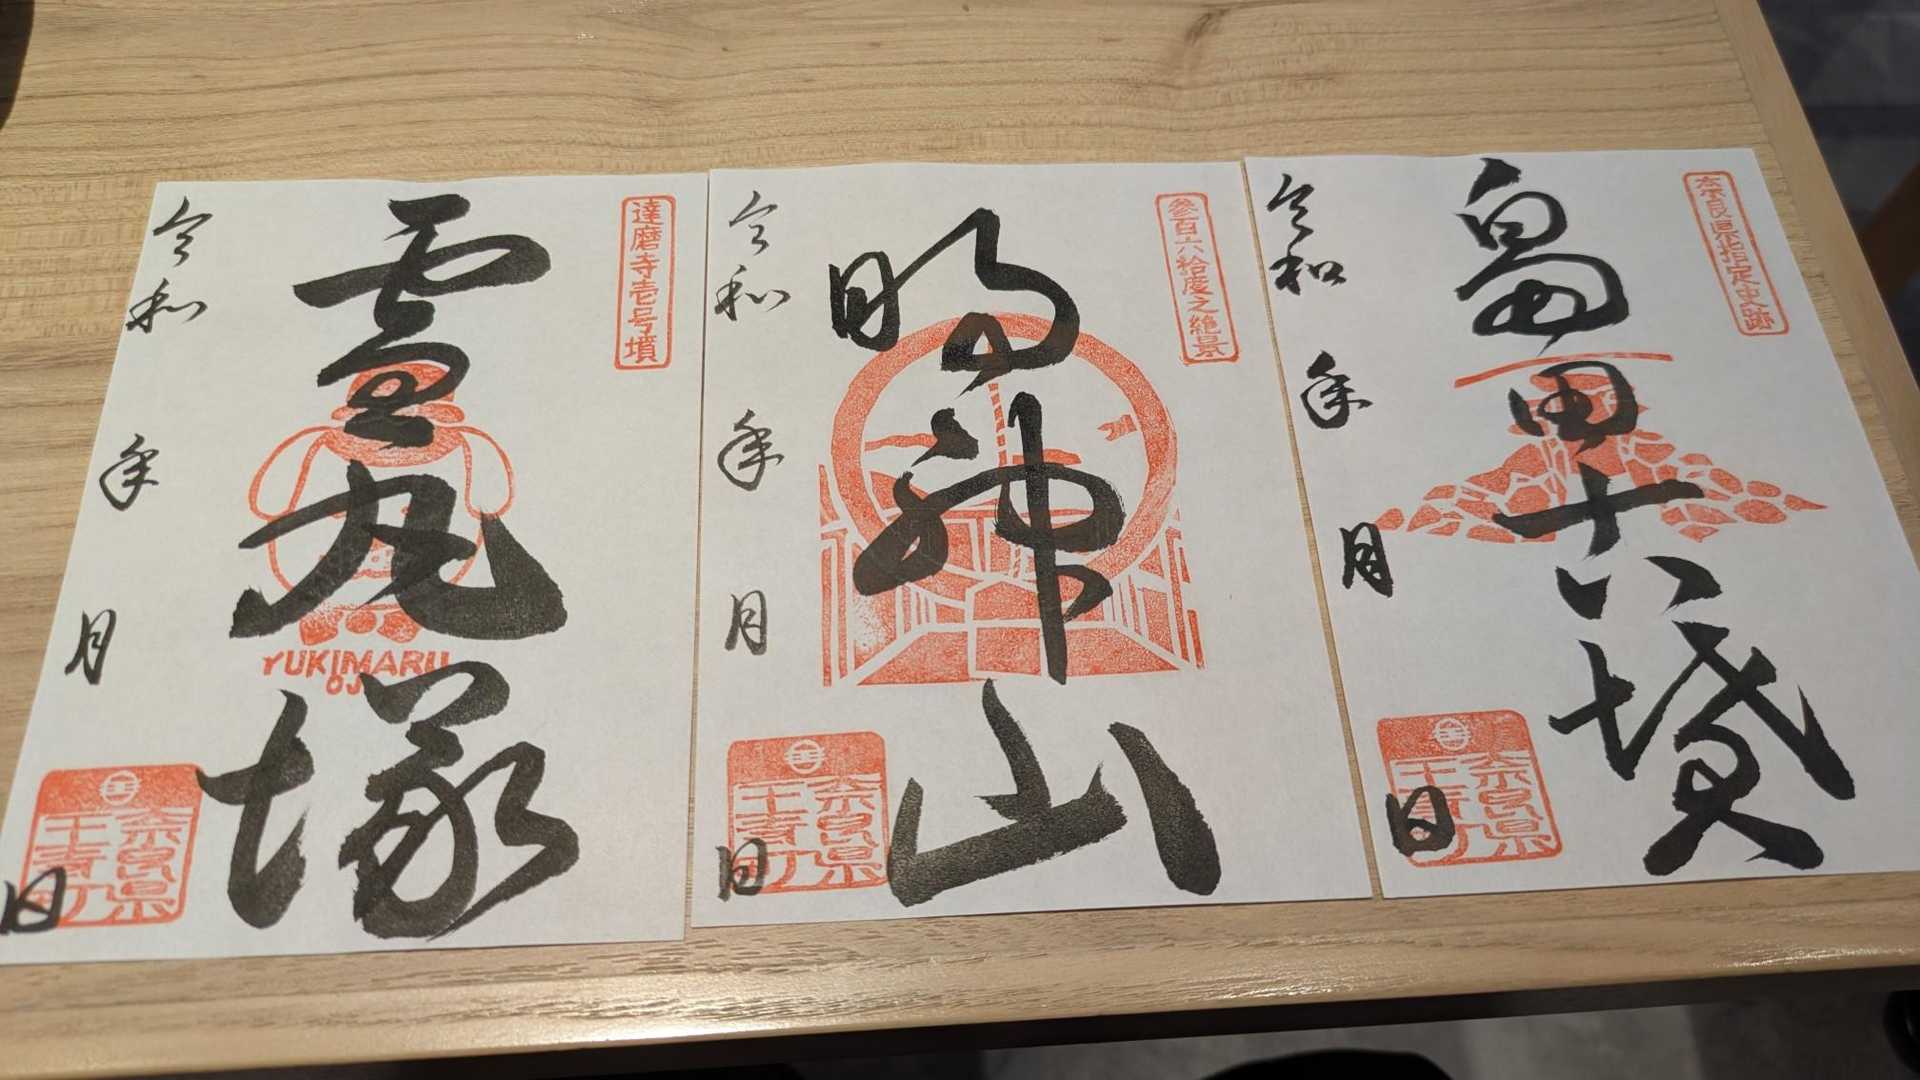 達磨寺壱号墳
雪丸塚
YUKIMARU
OJ
令和 年 月 日
奈良県
王寺町
参百六拾度之絶景
明神山
令和 年 月 日
奈良県
王寺町
奈良県指定史跡
畠田古墳
令和 年 月 日
奈良県
王寺町